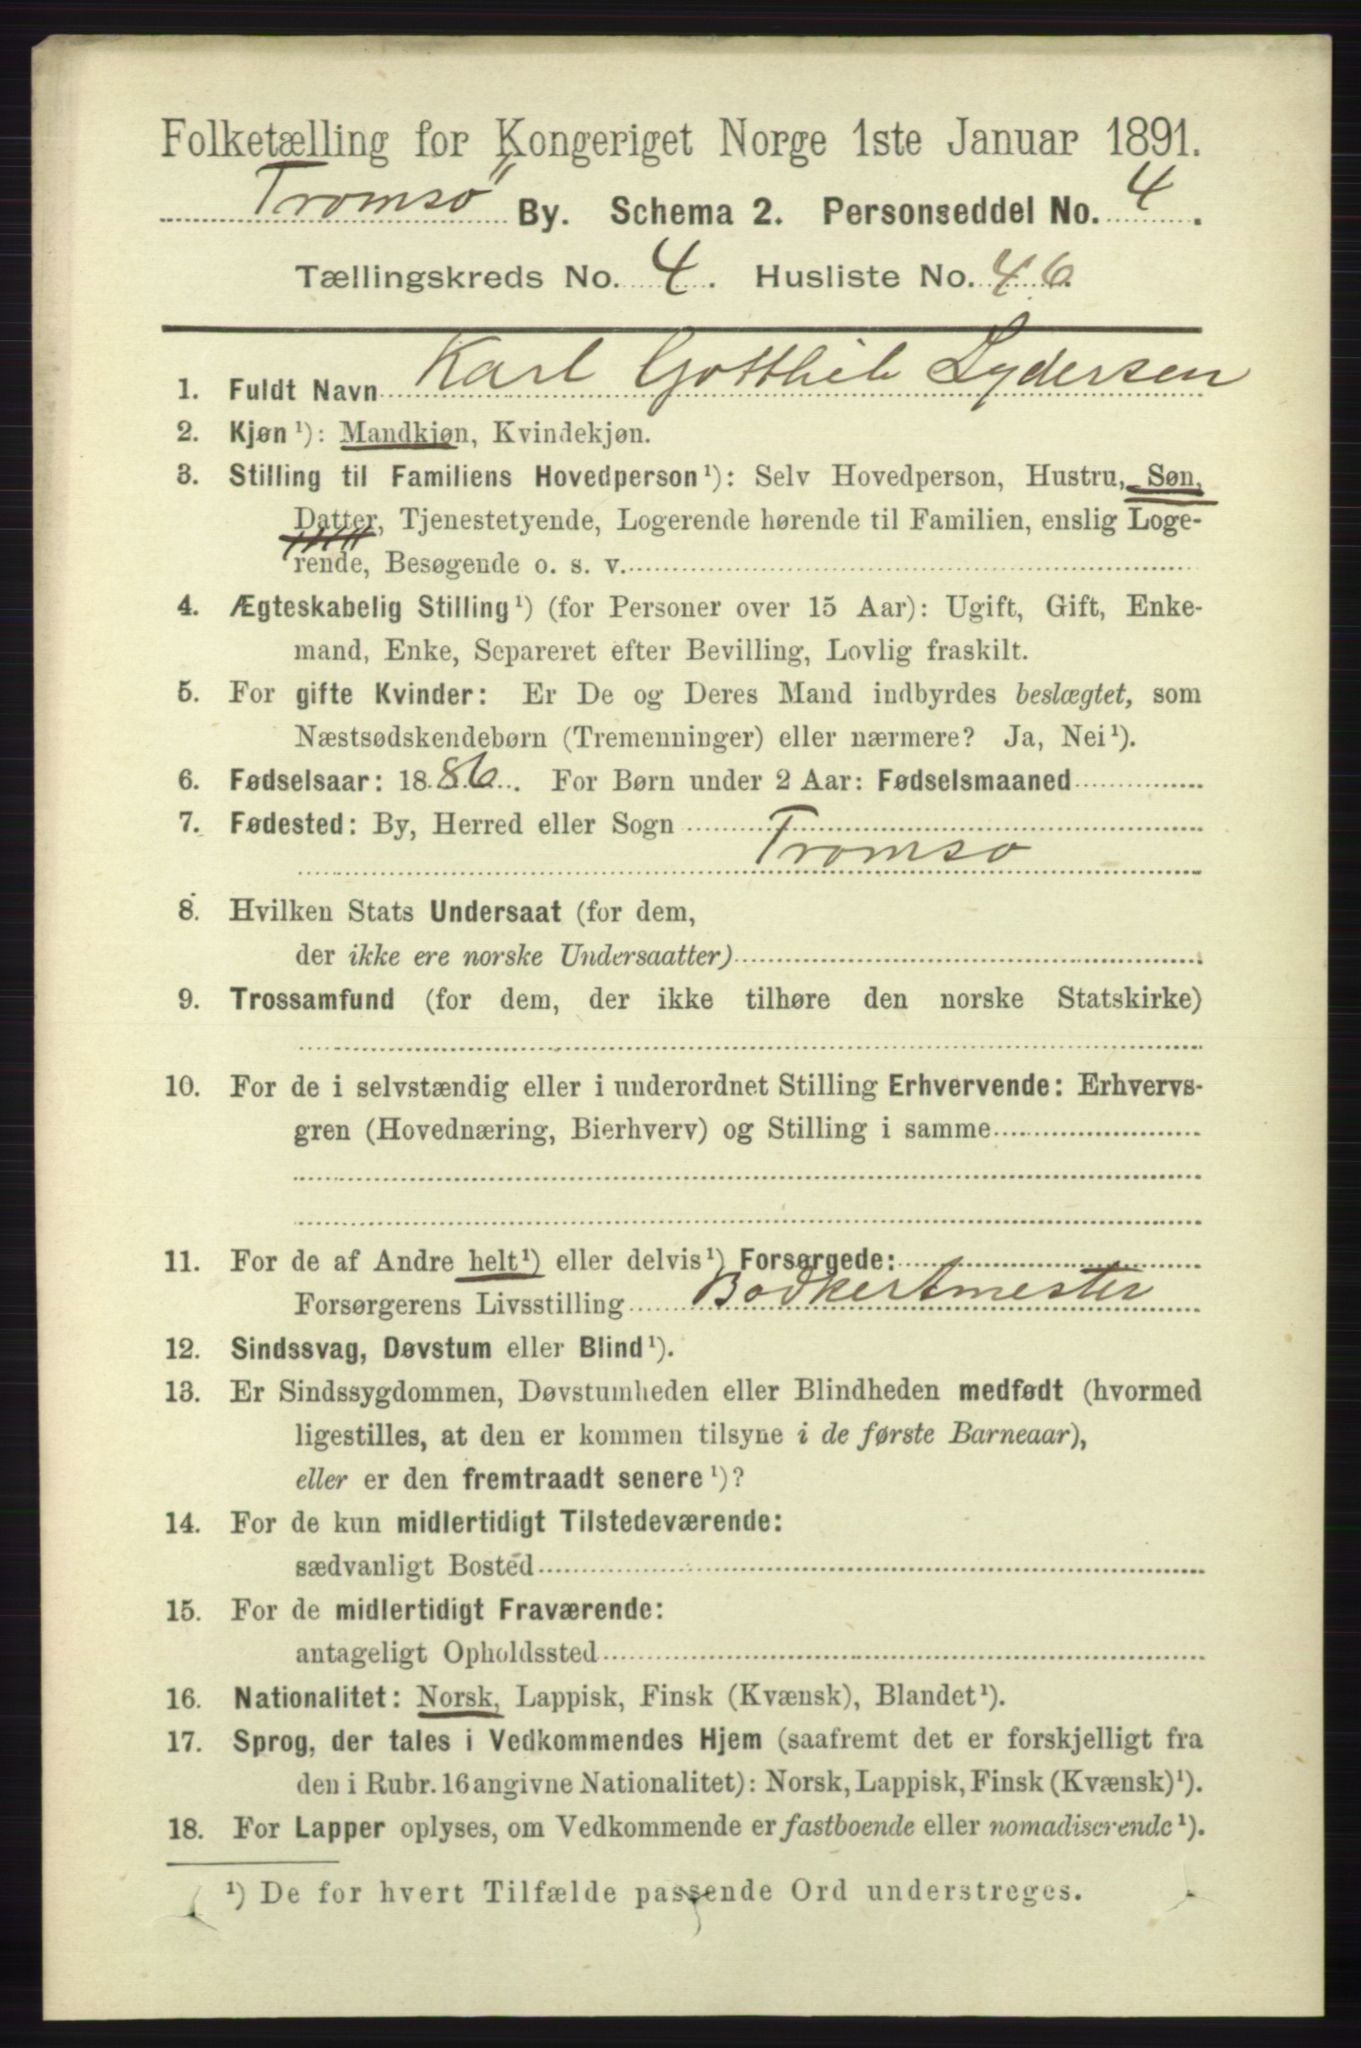 Folketælling for Kongeriget Norge 1ste Januar 1891.
Tromsø By. Schema 2. Personseddel No. 4.
Tællingskreds No. 4. Husliste No. 46
1. Fuldt Navn Karl Gotthieb Lydersen
2. Kjøn¹): Mandkjøn, Kvindekjøn.
3. Stilling til Familiens Hovedperson¹): Selv Hovedperson, Hustru, Søn,
Datter, Tjenestetyende, Logerende hørende til Familien, enslig Loge-
rende, Besøgende o. s. v.
4. Ægteskabelig Stilling¹) (for Personer over 15 Aar): Ugift, Gift, Enke-
mand, Enke, Separeret efter Bevilling, Lovlig fraskilt.
5. For gifte Kvinder: Er De og Deres Mand indbyrdes beslægtet, som
Næstsødskendebørn (Tremenninger) eller nærmere? Ja, Nei¹).
6. Fødselsaar: 1886. For Børn under 2 Aar: Fødselsmaaned
7. Fødested: By, Herred eller Sogn
Tromso
8. Hvilken Stats Undersaat (for dem,
der ikke ere norske Undersaatter)
9. Trossamfund (for dem, der ikke tilhøre den norske Statskirke)
10. For de i selvstændig eller i underordnet Stilling Erhvervende: Erhvervs-
gren (Hovednæring, Bierhverv) og Stilling i samme
11. For de af Andre helt¹) eller delvis¹) Forsørgede:
Forsørgerens Livsstilling Bodkertmester
12. Sindssvag, Døvstum eller Blind¹).
13. Er Sindssygdommen, Døvstumheden eller Blindheden medfødt (hvormed
ligestilles, at den er kommen tilsyne i de første Barneaar),
eller er den fremtraadt senere¹)?
14. For de kun midlertidigt Tilstedeværende:
sædvanligt Bosted
15. For de midlertidigt Fraværende:
antageligt Opholdssted
16. Nationalitet: Norsk, Lappisk, Finsk (Kvænsk), Blandet¹).
17. Sprog, der tales i Vedkommendes Hjem (saafremt det er forskjelligt fra
den i Rubr. 16 angivne Nationalitet): Norsk, Lappisk, Finsk (Kvænsk)¹).
18. For Lapper oplyses, om Vedkommende er fastboende eller nomadiserende¹).
¹) De for hvert Tilfælde passende Ord understreges.